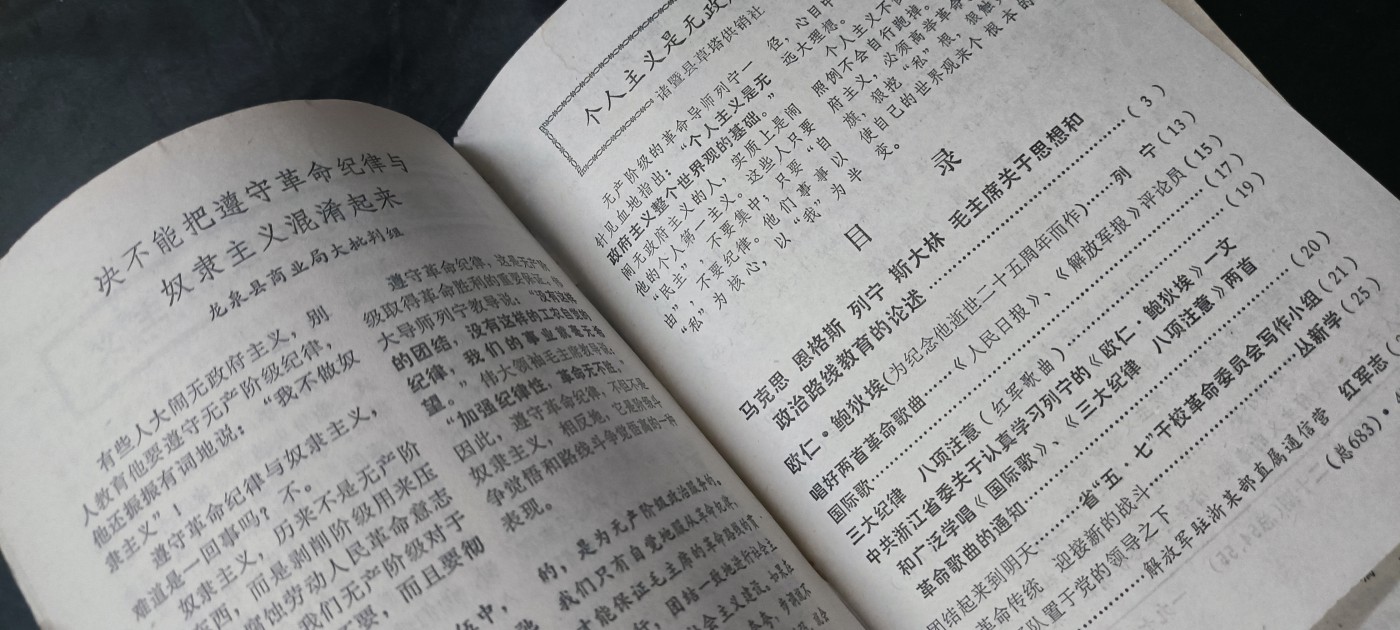 决不能把遵守革命纪律与
奴隶主义混淆起来
龙泉县商业局大批判组
有些人大闹无政府主义，别
人教育他要遵守无产阶级纪律，
他还振振有词地说：“我不做奴
隶主义”！
遵守革命纪律与奴隶主义，
难道是一回事吗？不。
奴隶主义，历来不是无产阶
东西，而是剥削阶级用来压
腐蚀劳动人民革命意志
我们无产阶级对于
要，而且要彻
遵守革命纪律，这是无产阶
级取得革命胜利的重要保证。伟
大导师列宁教导说：“没有这样
的团结，没有这样的工农自觉的
纪律，我们的事业就毫无希
望。”伟大领袖毛主席教导说：
“加强纪律性，革命无不胜。”
因此，遵守革命纪律，不但不是
奴隶主义，相反地，它是阶级斗
争觉悟和路线斗争觉悟高的一种
表现。
伍中，
的，是为无产阶级政治服务的。
我们只有自觉地服从革命纪律，
才能保证毛主席的革命路线的贯
行，团结一致地进行社会主
个人主义是无政
诸暨县草塔供销社
无产阶级的革命导师列宁一
针见血地指出：“个人主义是无
政府主义整个世界观的基础。”
闹无政府主义的人，实质上是闹
他的个人第一主义。这些人只要
“民主”，不要集中，只要“自
由”，不要纪律。他们事事以
“私”为核心，以“我”为半
径，心目中
远大理想。
个人主义不
照例不会自行跑掉。
府主义，必须高举革命
旗，狠挖“私”根，狠触
使自己的世界观来个根本的
变。
目 录
马克思 恩格斯 列宁 斯大林 毛主席关于思想和
政治路线教育的论述……（3）
欧仁·鲍狄埃(为纪念他逝世二十五周年而作)……列 宁（13）
唱好两首革命歌曲……《人民日报》、《解放军报》评论员（15）
国际歌……（17）
三大纪律 八项注意（红军歌曲）……（19）
中共浙江省委关于认真学习列宁的《欧仁·鲍狄埃》一文
和广泛学唱《国际歌》、《三大纪律 八项注意》两首
革命歌曲的通知……（20）
团结起来到明天……省“五·七”干校革命委员会写作小组（21）
革命传统 迎接新的战斗……丛新学（25）
队置于党的领导之下
……解放军驻浙某部直属通信营 红军志
（总683）